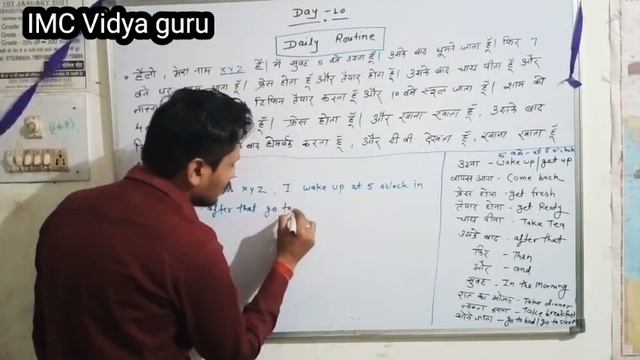 1ST JANUARY 2021
IMC Vidya guru
Day - 20
Daily Routine
हैलो, मेरा नाम XYZ है। मैं सुबह 5 बजे उठता हूँ। उसके बाद घूमने जाता हूँ। फिर 7
बजे घर आता हूँ। फ्रेस होता हूँ और तैयार होता हूँ। उसके बाद चाय पीता हूँ और
टिफिन तैयार करता हूँ और 10 बजे स्कूल जाता हूँ। शाम को
4 हूँ। फ्रेस होता हूँ। और खाना खाता हूँ, उसके बाद
बाद होमवर्क करता हूँ, और टी.वी देखता हूँ, खाना खाता हूँ
XYZ. I wake up at 5 o'clock in
after that go to
5 am - at 5 o'clock
उठना - wake up/get up
वापस आना - Come back
फ्रेस होना - get fresh
तैयार होना - get Ready
चाय पीना - Take Tea
उसके बाद - after that
फिर - Then
और - and
सुबह - In the Morning
रात का भोजन - Take dinner
नास्ता करना - Take breakfast
सोने जाना - go to bed/go to sleep